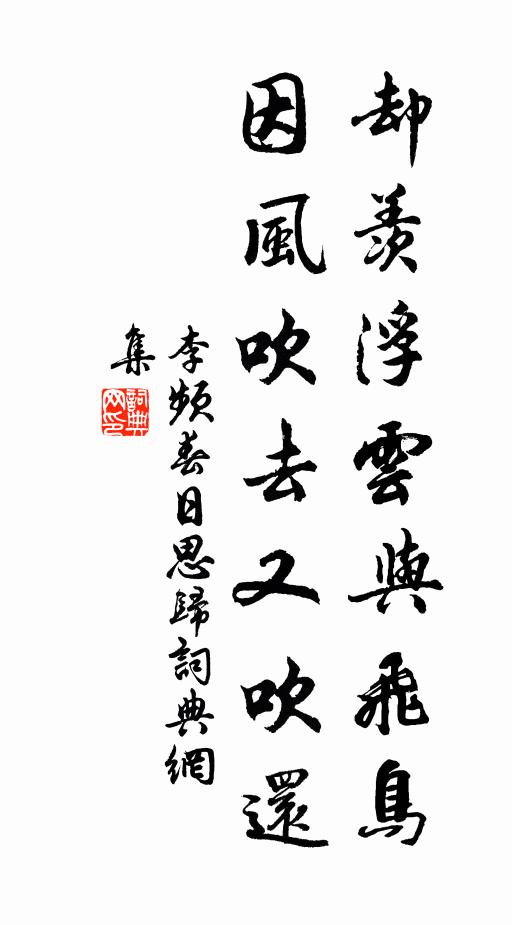 却羨浮雲與飛鳥
因風吹去又吹還
李頻春日思歸詞典網
集
詞典網印